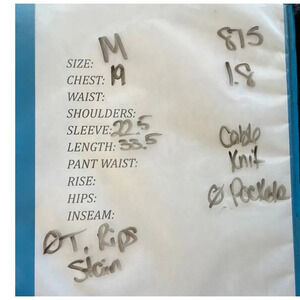 M 875
SIZE:
CHEST: 19 1.8
WAIST:
SHOULDERS:
SLEEVE: 22.5
LENGTH: 33.5
Cable
Knit
PANT WAIST:
RISE:
HIPS:
Ø Pockets
INSEAM:
ØT. Rips
Stain